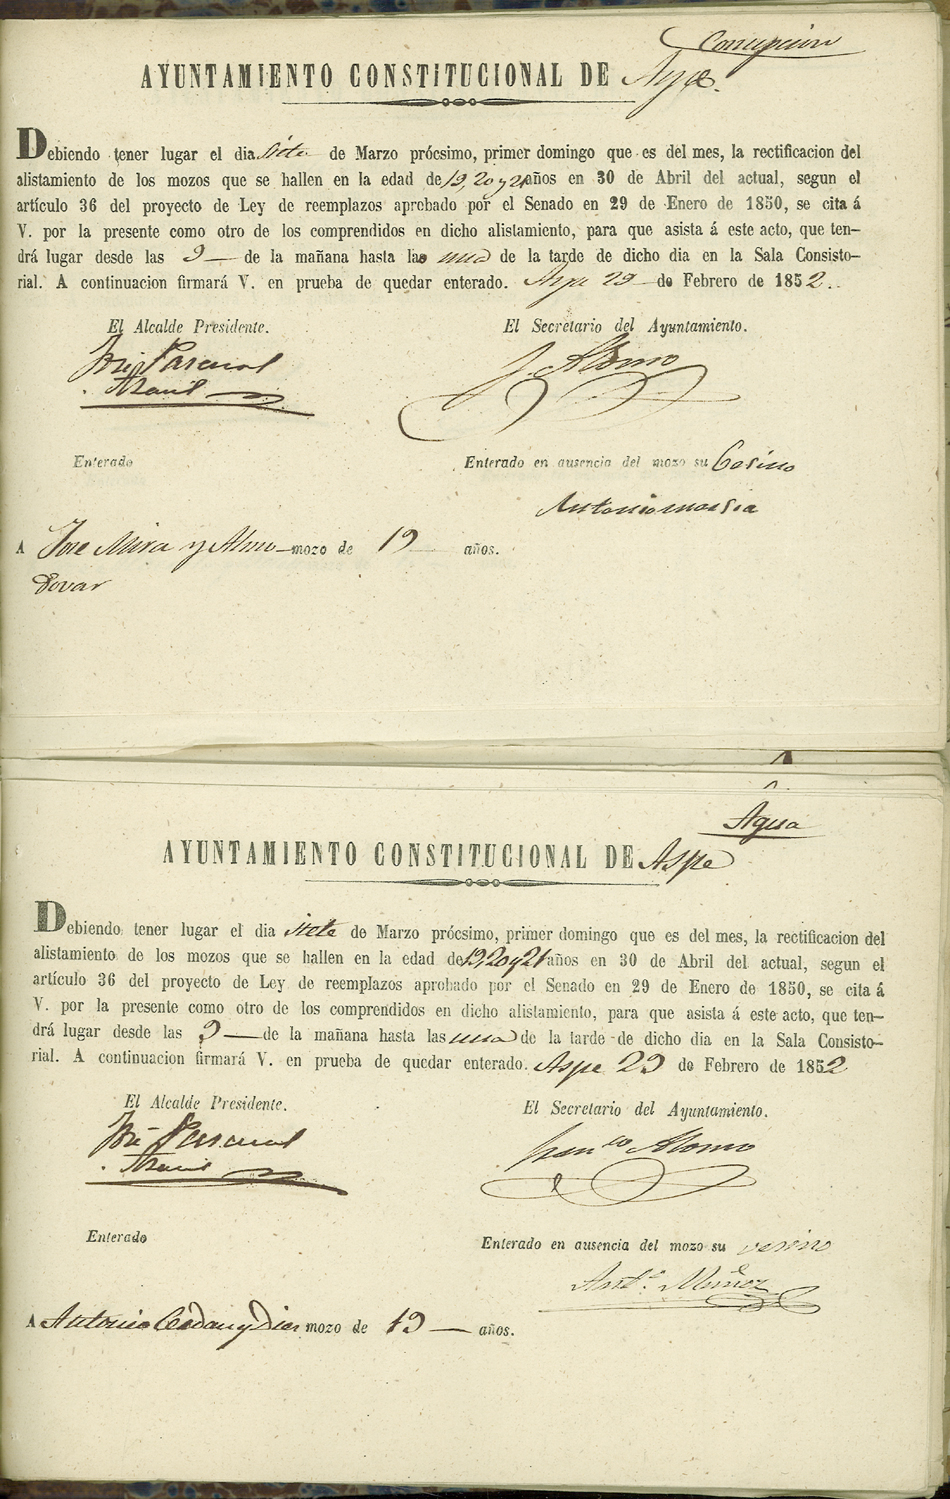 Concepcion
AYUNTAMIENTO CONSTITUCIONAL DE Aspe.
Debiendo tener lugar el dia siete de Marzo prócsimo, primer domingo que es del mes, la rectificacion del
alistamiento de los mozos que se hallen en la edad de 19, 20 y 21 años en 30 de Abril del actual, segun el
artículo 36 del proyecto de Ley de reemplazos aprobado por el Senado en 29 de Enero de 1850, se cita á
V. por la presente como otro de los comprendidos en dicho alistamiento, para que asista á este acto, que ten-
drá lugar desde las 9 de la mañana hasta la una de la tarde de dicho dia en la Sala Consisto-
rial. A continuacion firmará V. en prueba de quedar enterado. Aspe 29 de Febrero de 1852.
El Alcalde Presidente.
El Secretario del Ayuntamiento.
José Pascual
Alonso
Enterado
Enterado en ausencia del mozo su Besino
Antonio
A Jose Mira y Almo- mozo de 19 años.
dovar
Agua
AYUNTAMIENTO CONSTITUCIONAL DE Aspe
Debiendo tener lugar el dia siete de Marzo prócsimo, primer domingo que es del mes, la rectificacion del
alistamiento de los mozos que se hallen en la edad de 19, 20 y 21 años en 30 de Abril del actual, segun el
artículo 36 del proyecto de Ley de reemplazos aprobado por el Senado en 29 de Enero de 1850, se cita á
V. por la presente como otro de los comprendidos en dicho alistamiento, para que asista á este acto, que ten-
drá lugar desde las 9 de la mañana hasta las una de la tarde de dicho dia en la Sala Consisto-
rial. A continuacion firmará V. en prueba de quedar enterado. Aspe 29 de Febrero de 1852
El Alcalde Presidente.
El Secretario del Ayuntamiento.
José Pascual
Alonso
Enterado
Enterado en ausencia del mozo su vesino
Antº Muñoz
A Antonio y Dies mozo de 19 años.